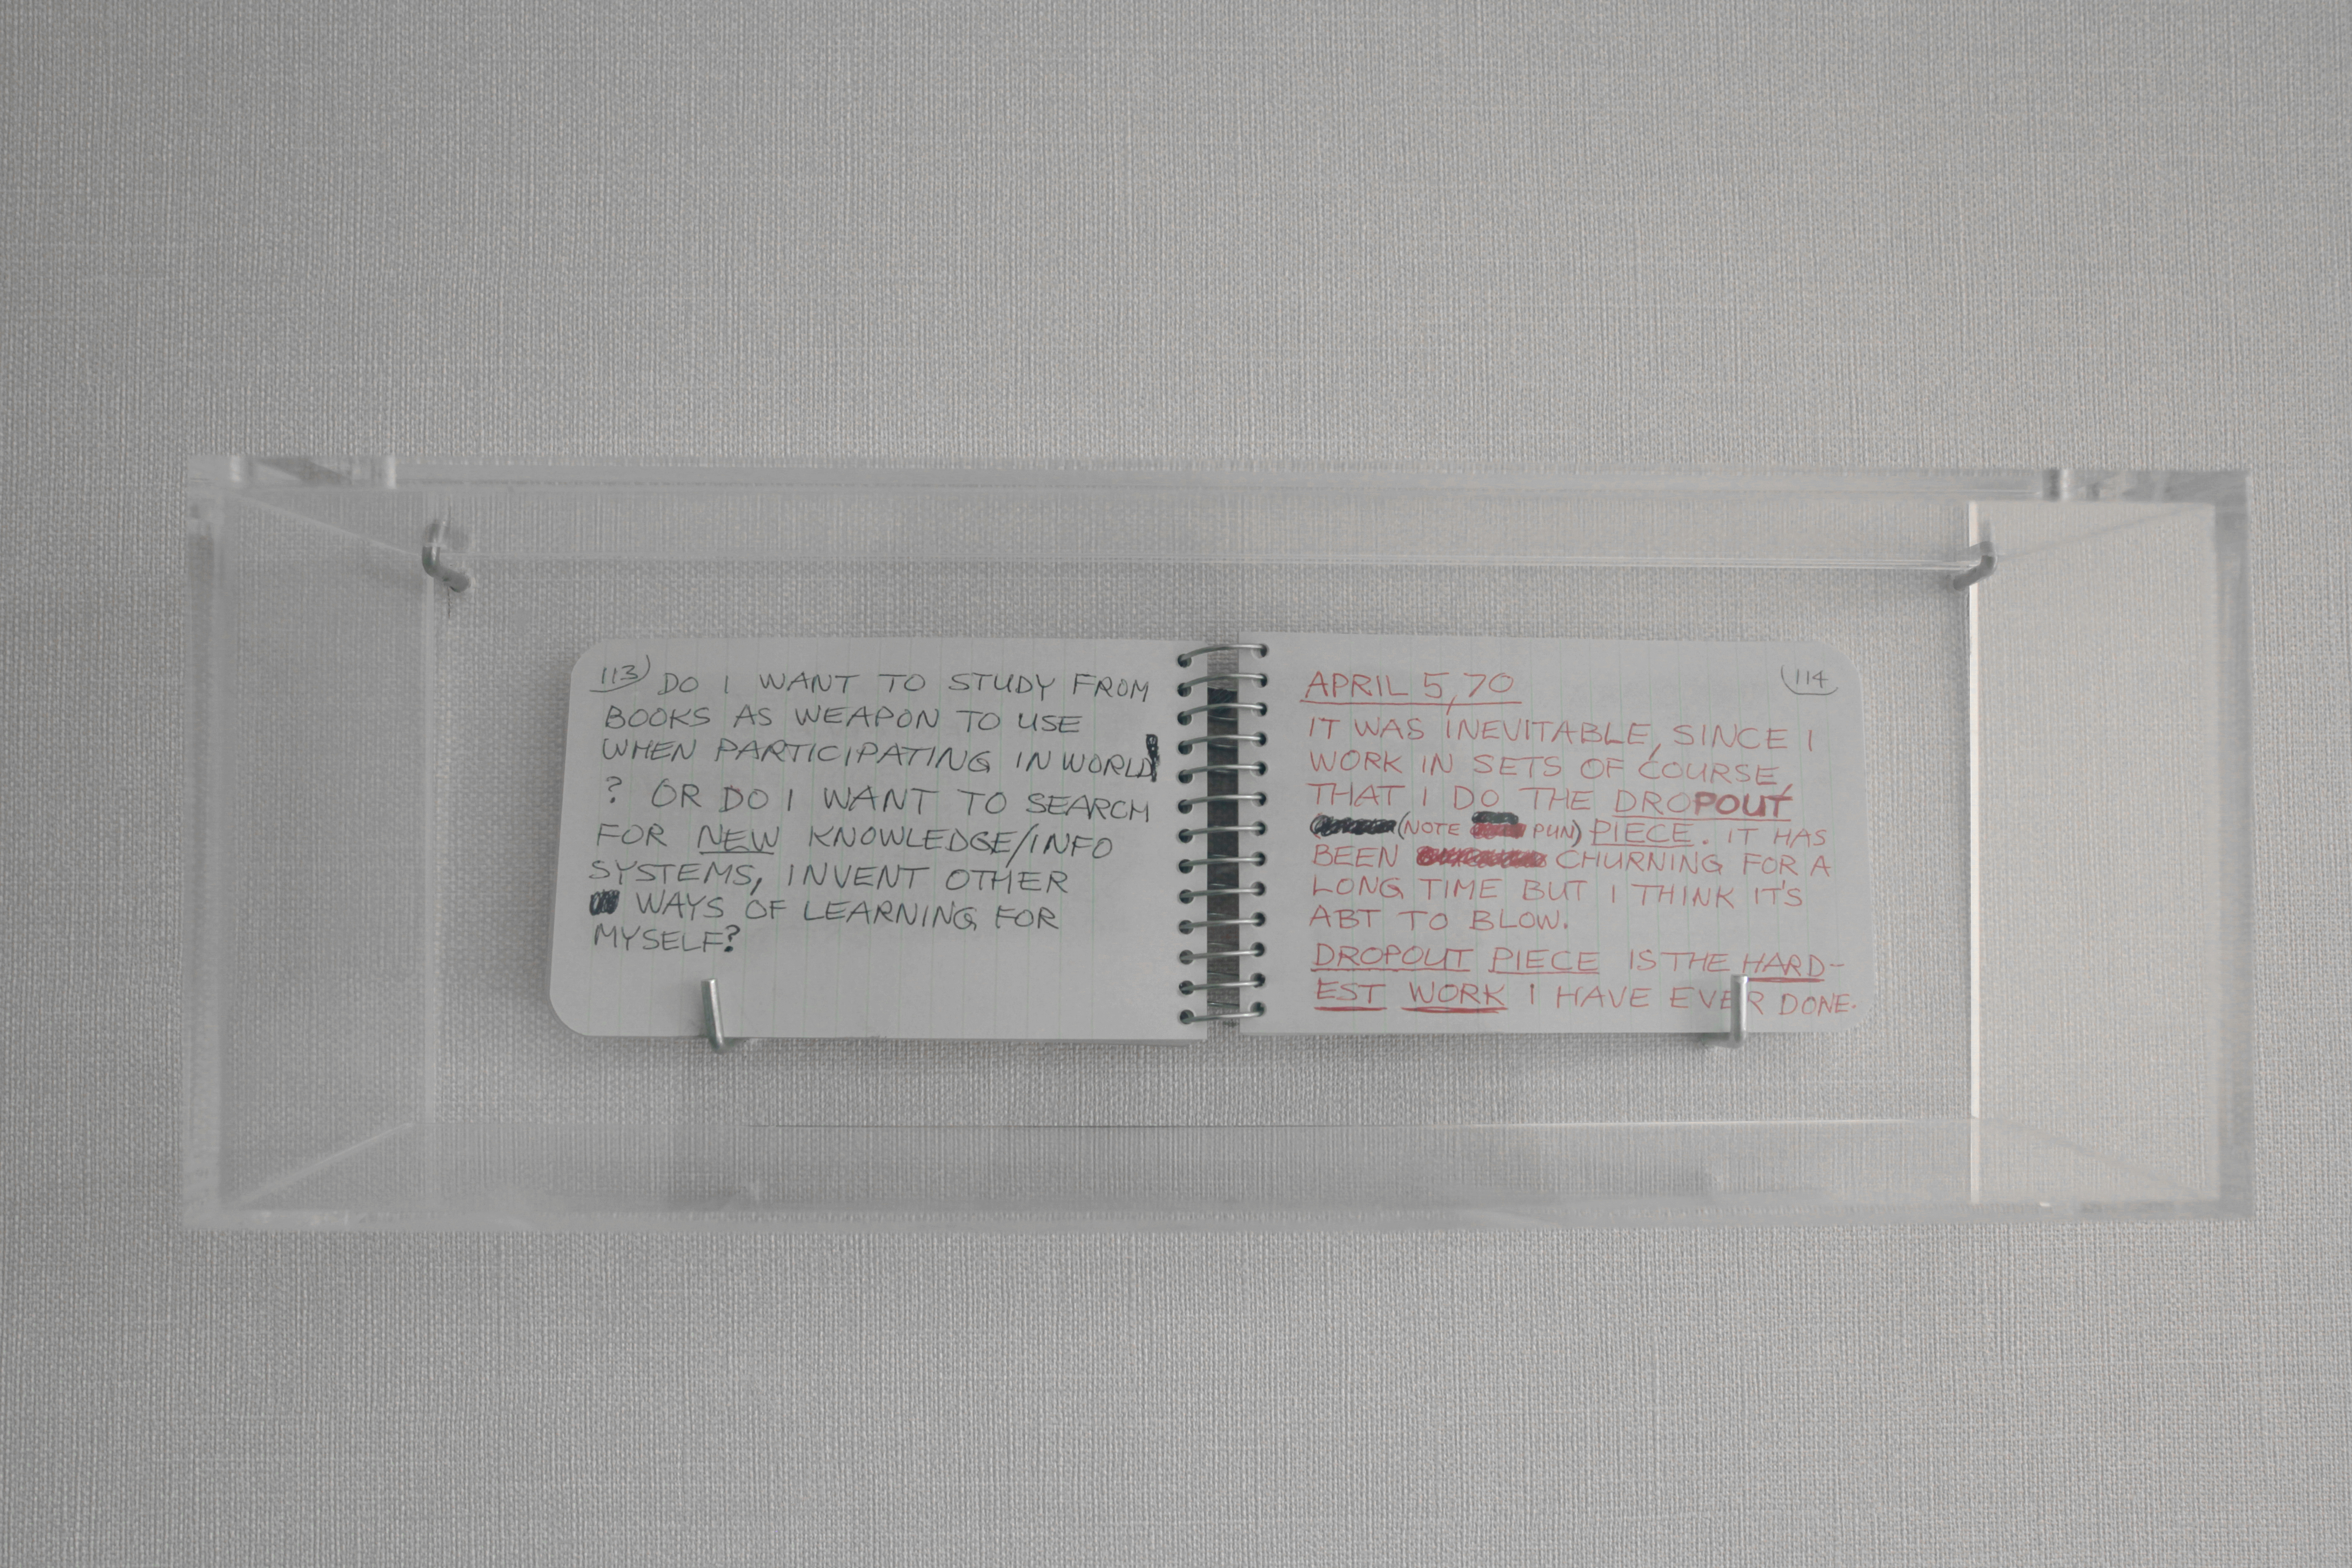 113) DO I WANT TO STUDY FROM
BOOKS AS WEAPON TO USE
WHEN PARTICIPATING IN WORLD
? OR DO I WANT TO SEARCH
FOR NEW KNOWLEDGE/INFO
SYSTEMS, INVENT OTHER
WAYS OF LEARNING FOR
MYSELF?
114
APRIL 5, 70
IT WAS INEVITABLE, SINCE I
WORK IN SETS OF COURSE,
THAT I DO THE DROPOUT
(NOTE PUN) PIECE. IT HAS
BEEN CHURNING FOR A
LONG TIME BUT I THINK IT'S
ABT TO BLOW.
DROPOUT PIECE IS THE HARD-
EST WORK I HAVE EVER DONE.